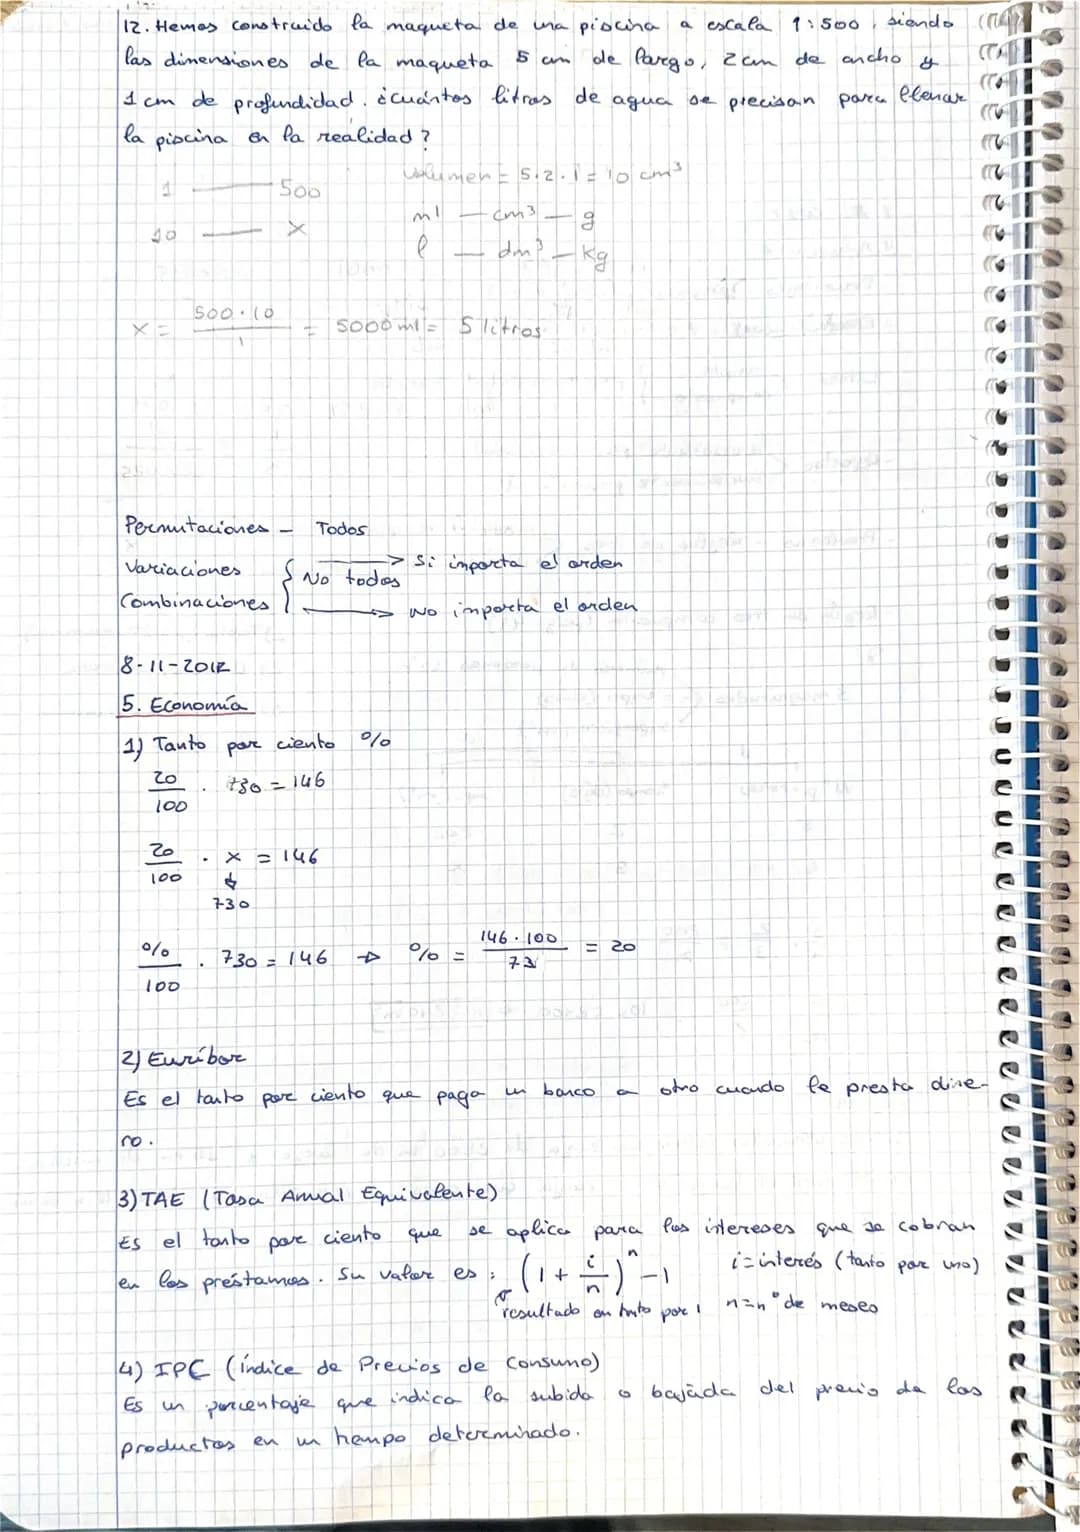 12. Hemos construido la maqueta de una piscina a escala 1:500, siendo
las dimensiones de la maqueta 5 cm de largo, 2 cm de ancho y
1 cm de profundidad. ¿cuántos litros de agua se precisan para llenar
la piscina en la realidad?
1 — 500
volumen = 5·2·1 = 10 cm³
10 — x
ml — cm³ — g
l — dm³ — kg
x = 500·10 / 1 = 5000 ml = 5 litros
Permutaciones - Todos
Variaciones
Combinaciones { No todos
→ Si importa el orden
→ No importa el orden
8-11-2012
5. Economía
1) Tanto por ciento %
20/100 · 730 = 146
20/100 · x = 146
↓
730
%/100 · 730 = 146 → % = 146·100 / 73 = 20
2) Euríbor
Es el tanto por ciento que paga un banco a otro cuando le presta dine-
ro.
3) TAE (Tasa Anual Equivalente)
Es el tanto por ciento que se aplica para los intereses que se cobran
en los préstamos. Su valor es: (1 + i/n)ⁿ - 1
i = interés (tanto por uno)
resultado en tanto por 1
n = nº de meses
4) IPC (índice de Precios de Consumo)
Es un porcentaje que indica la subida o bajada del precio de los
productos en un tiempo determinado.